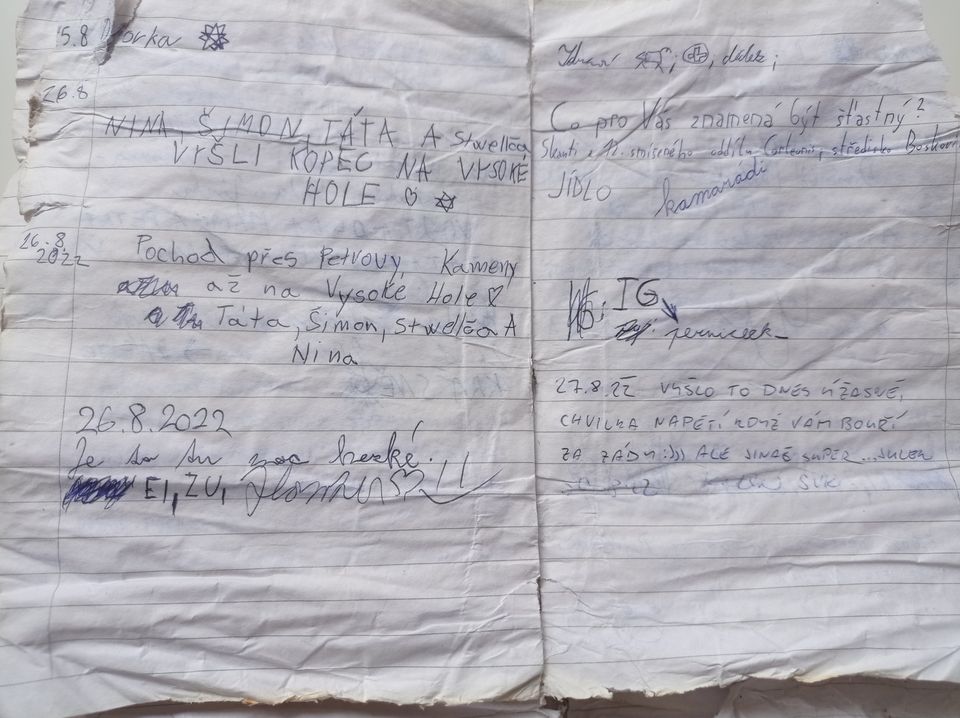 5.8
26.8
NINA, ŠIMON, TÁTA A Stwellča
VYŠLI KOPEC NA VYSOKÉ
HOLE
26.8.
2022
Pochod přes Petrovy Kameny
až na Vysoké Hole
Táta, Šimon, Stwellča A
Nina
26.8.2022
Je to tu moc hezké.
EI, ZU,
Zdraví
Co pro Vás znamená být šťastný?
Skauti z 12. smíšeného oddílu, středisko
JÍDLO
kamarádi
IG
27.8.22 VYŠLO TO DNES ÚŽASNĚ,
CHVILKA NAPĚTÍ KDYŽ VÁM BOUŘÍ
ZA ZÁDY:))) ALE JINAK SUPER...